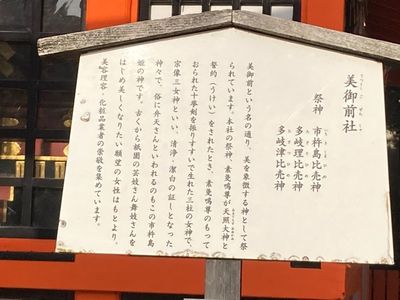 美御前社
祭神
市杵島比売神
多岐理比売神
多岐津比売神
美御前という名の通り、美を象徴する神として祭
られています。本社の祭神、素戔嗚尊が天照大神と
誓約(うけい)をされたとき、素戔嗚尊のもって
おられた十拳剣を振りすすいで生れた三柱の女神で、
宗像三女神といい、清浄・潔白の証しとなった
神々で、俗に弁天さんといわれるのもこの市杵島
姫の神です。古くから祇園の芸妓さん舞妓さんを
はじめ美しくなりたい願望の女性はもとより、
美容理容・化粧品業者の崇敬を集めています。